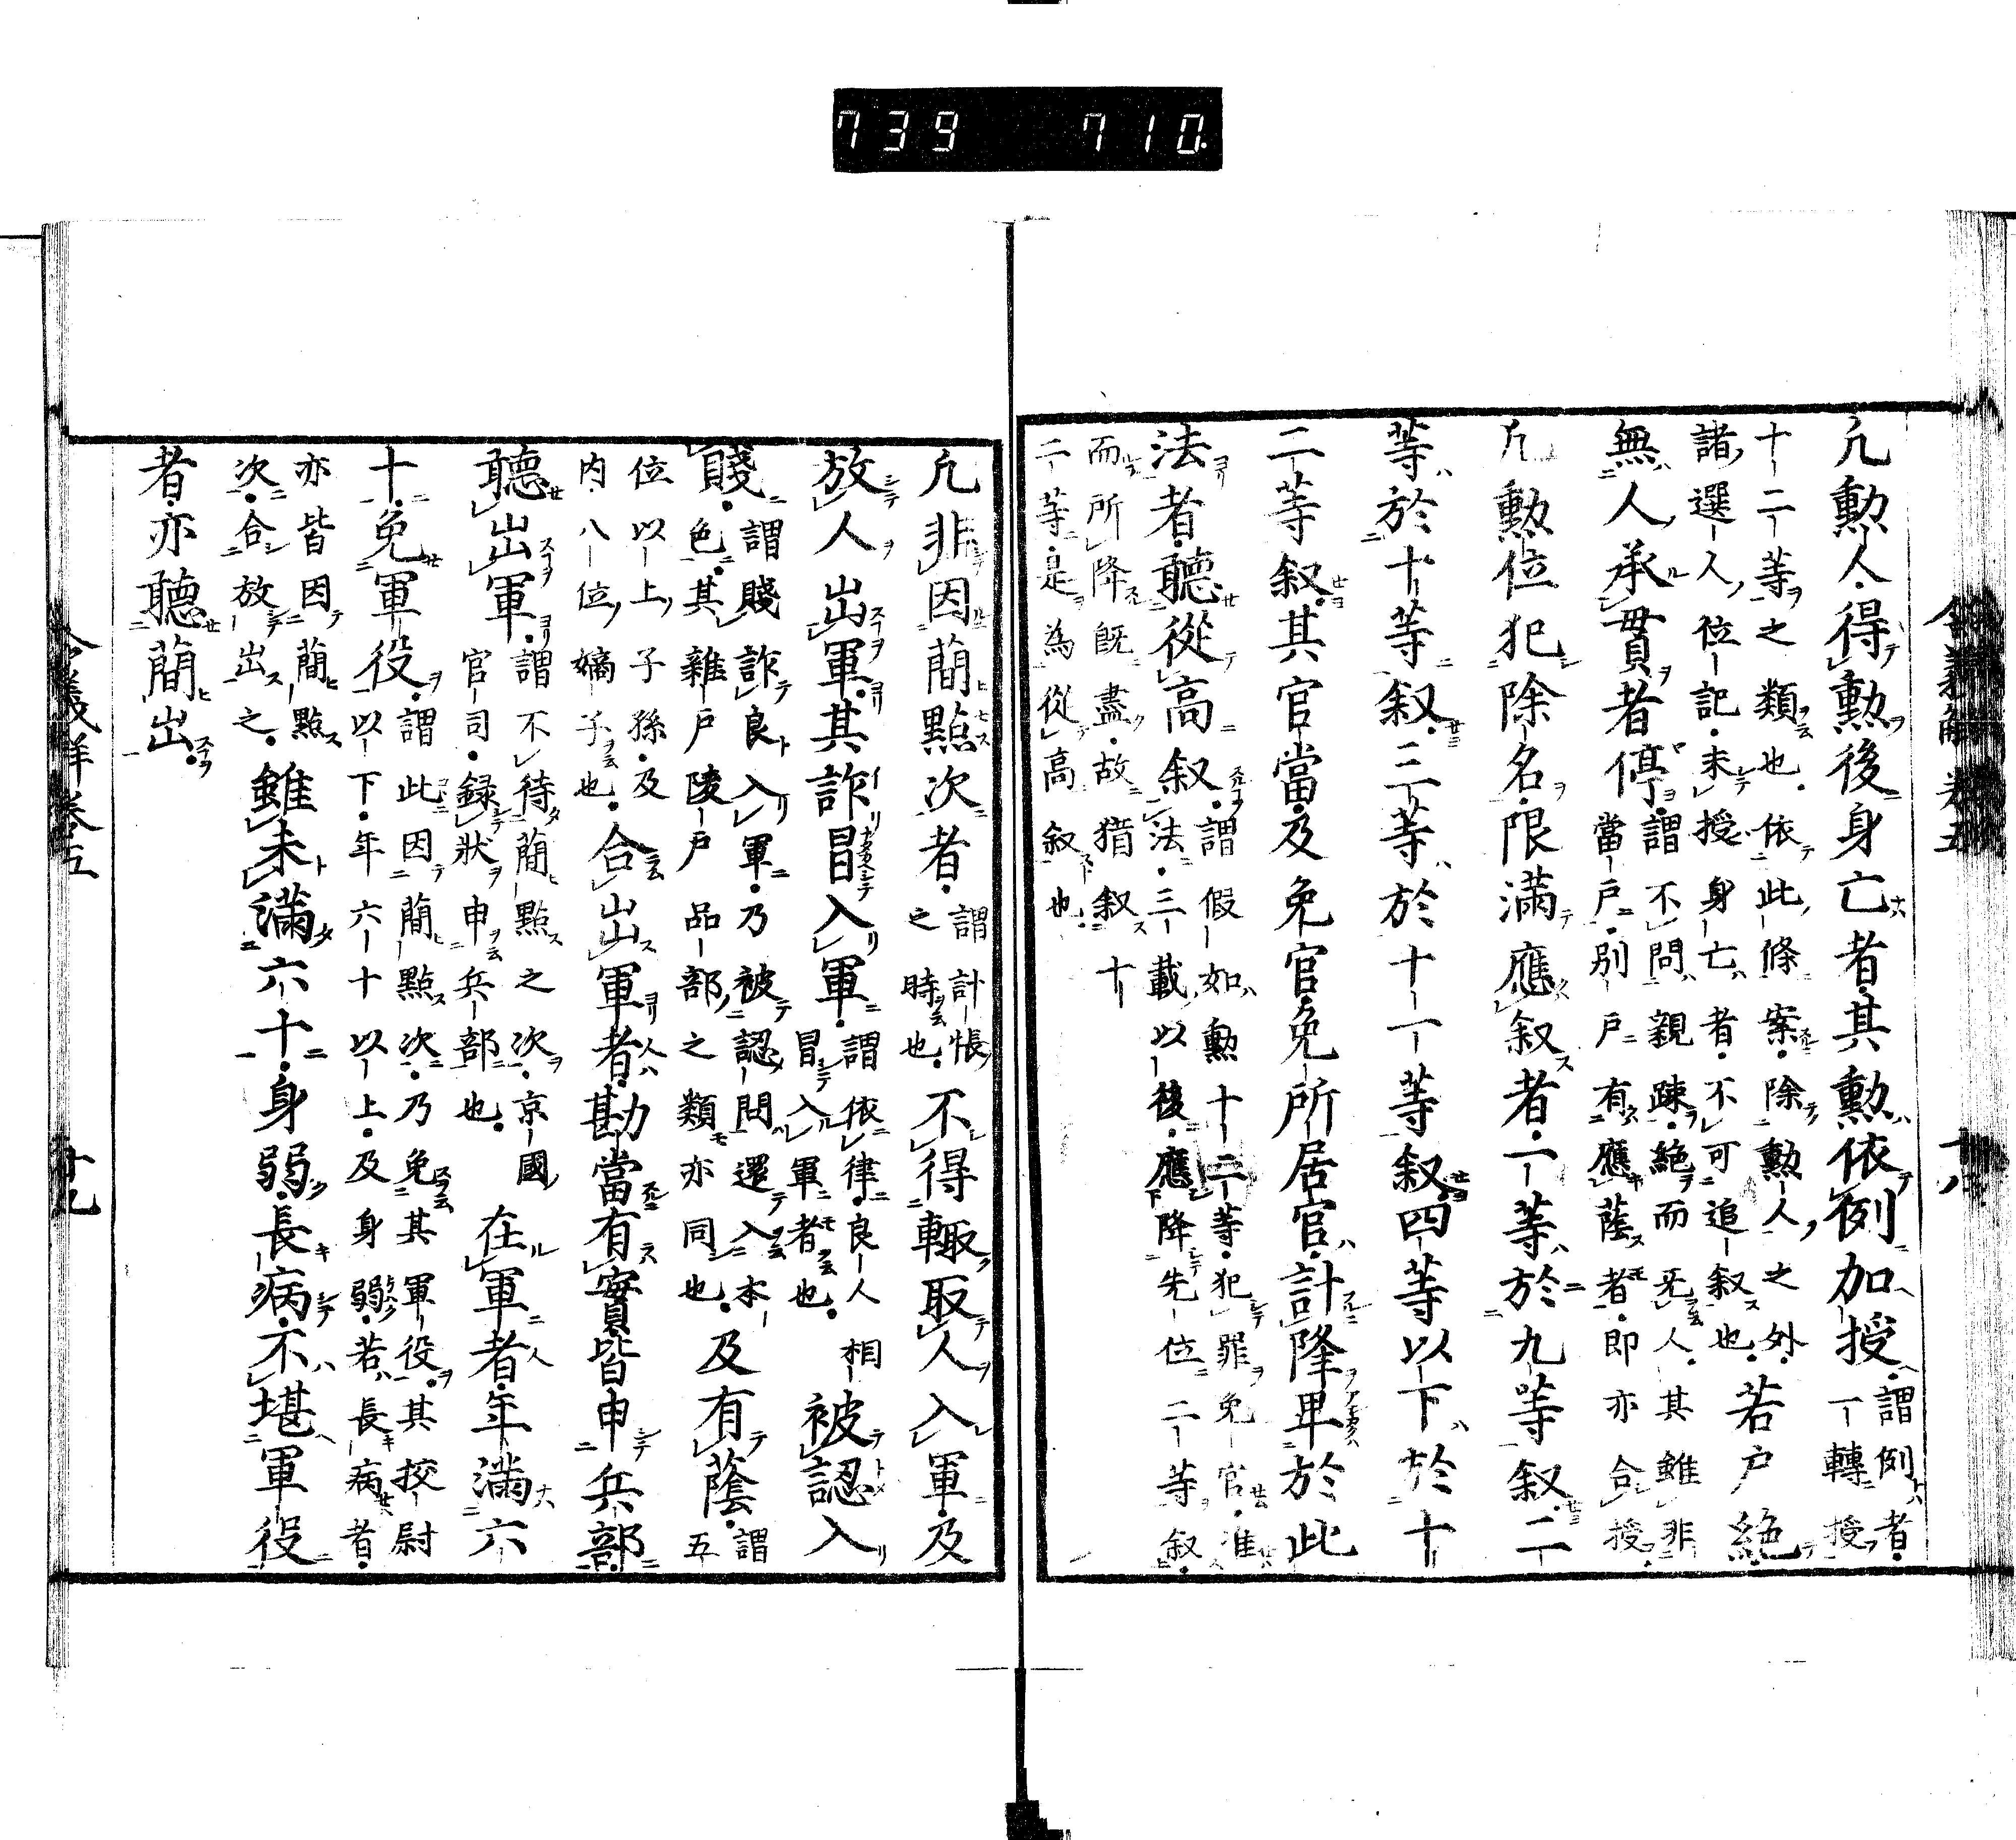 739 710.
令義解 卷五 十八
凢勲人得勲後身亡者其勲依例加授謂例者一轉授
十二等之類也依此條案除勲人之外諸選人位記未授身亡者不可追叙也若戸絶
無人承貫者停謂不問親踈絶而无人其雖非當戸別戸有應蔭者即亦合授
凢勲位犯除名限滿應叙者一等於九等叙二
等於十等叙三等於十一等叙四等以下於十
二等叙其官當及免官免所居官計降卑於此
法者聽從高叙謂假如勲十二等犯罪免官准法三載以後應降先位二等叙
而所降既盡故猶叙十二等是為從高叙也
凢非因蕳點次者謂計帳之時也不得輙取人入軍及
放人出軍其詐冒入軍謂依律良人相冒入軍者也被認入
賤謂賤詐良入軍乃被認問還入本色其雜戸陵戸品部之類亦同也及有蔭謂五
位以上子孫及内八位嫡子也合出軍者勘當有實皆申兵部
聽出軍謂不待蕳點之次京國官司録狀申兵部也在軍者年滿六
十免軍役謂此因蕳點次乃免其軍役其挍尉以下年六十以上及身弱若長病者
亦皆因蕳點次合放出之雖未滿六十身弱長病不堪軍役
者亦聽蕳出
令義解卷五 十九